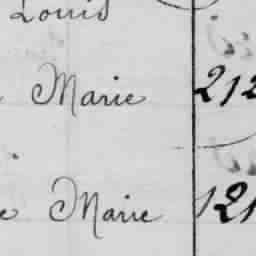 Louis
Marie 212
e Marie 121